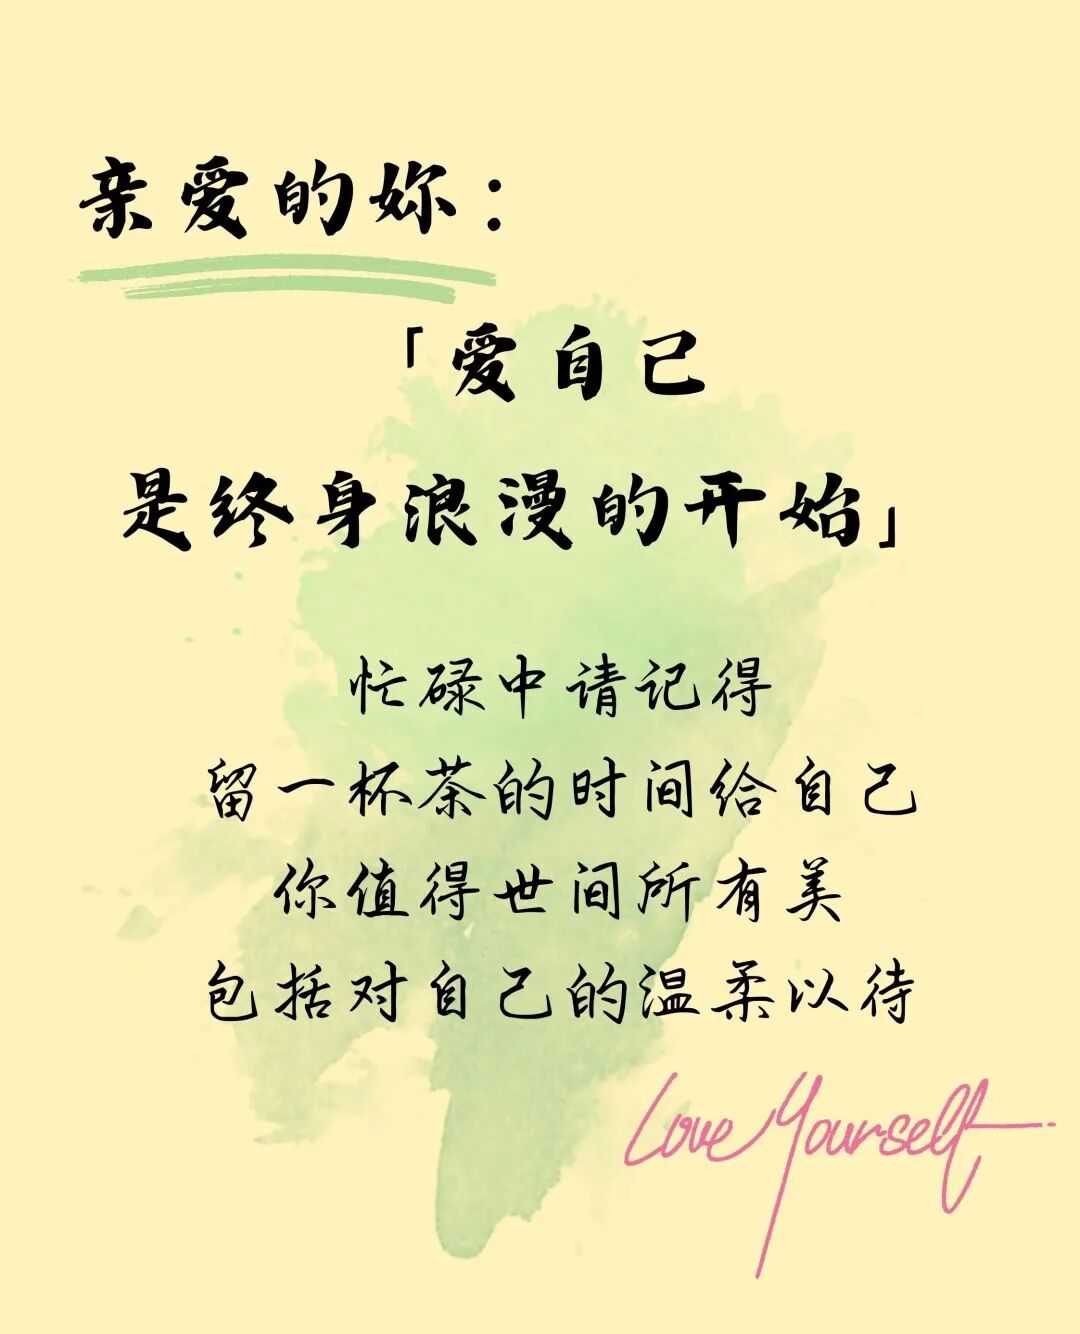 亲爱的妳：
「爱自己
是终身浪漫的开始」
忙碌中请记得
留一杯茶的时间给自己
你值得世间所有美
包括对自己的温柔以待
Love Yourself